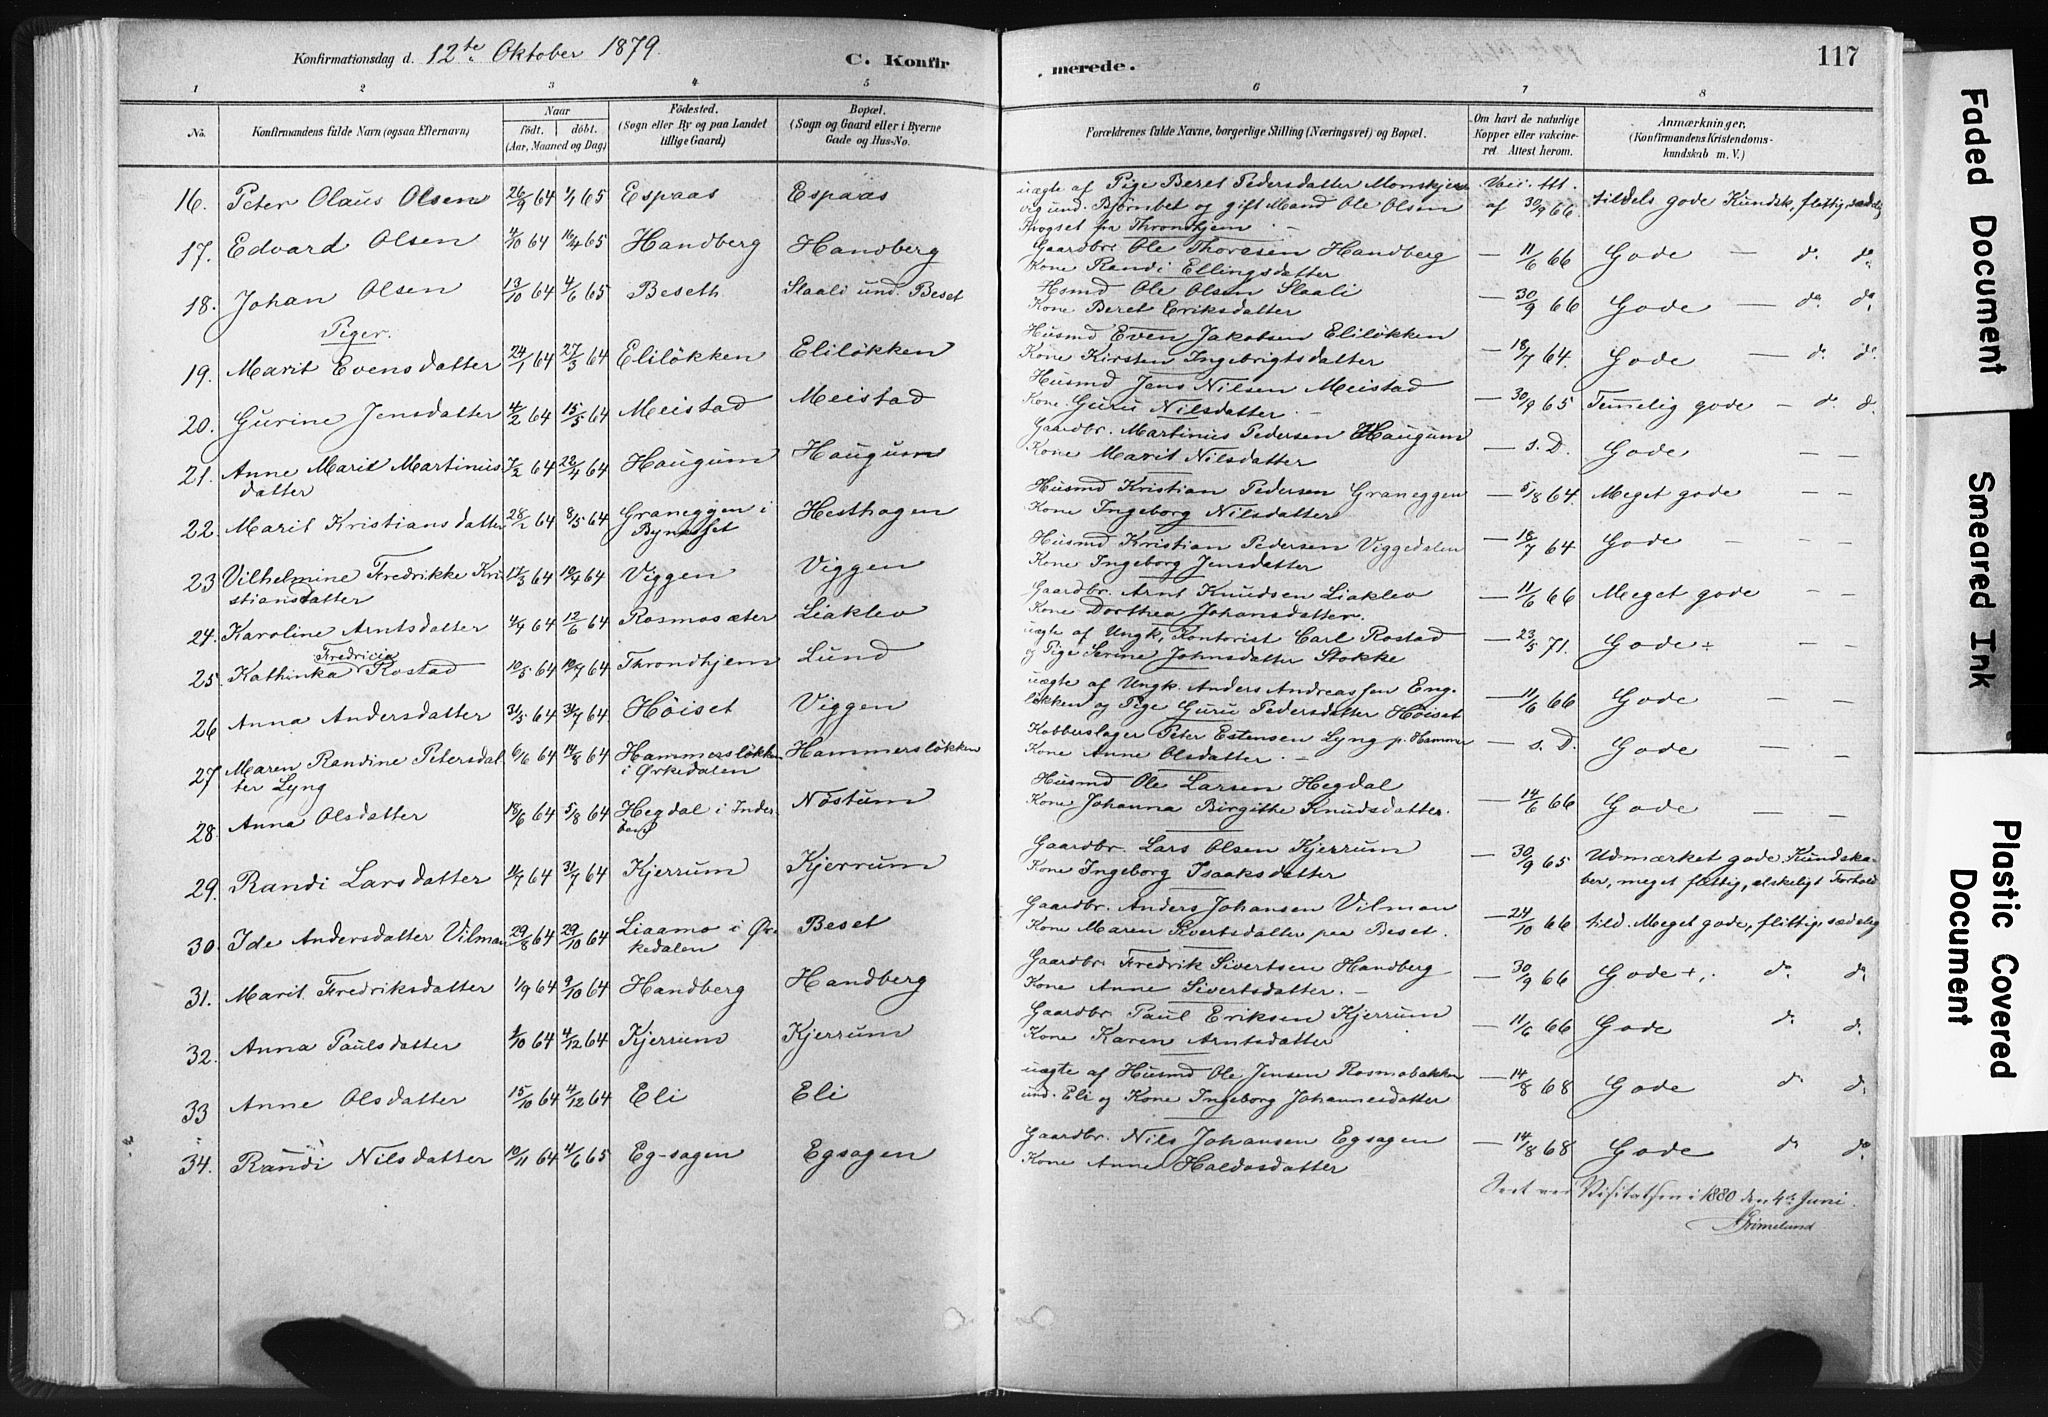 Konfirmationsdag d. 12te Oktober 1879. C. Konfir merede. 117
1 2 3 4 5 6 7 8
No. Konfirmandens fulde Navn (ogsaa Efternavn) Naar født. døbt. (Aar, Maaned og Dag) Fødested. (Sogn eller By og paa Landet tillige Gaard) Bopæl. (Sogn og Gaard eller i Byerne Gade og Hus-No. Forældrenes fulde Navne, borgerlige Stilling (Næringsvei) og Bopæl. Om havt de naturlige Kopper eller vakcineret. Attest herom. Anmærkninger, (Konfirmandens Kristendomskundskab m. V.)
16. Peter Olaus Olsen 26/9 64 1/1 65 Espaas Espaas uægte af Pige Beret Pedersdatter
und. Bjørnbet og gift Mand Ole Olsen af 30/9 66 tildels gode Kundsk., flittig, sædelig
fra Throndhjem
17. Edvard Olsen 4/10 64 16/4 65 Handberg Handberg Gaardbr. Ole Thoresen Handberg
Kone Randi Ellingsdatter — 11/6 66 Gode — do. do.
18. Johan Olsen 13/10 64 4/6 65 Beseth Slaali und. Beset Hsmd Ole Olsen Slaali
Kone Beret Eriksdatter — 30/9 66 Gode — do. do.
Piger.
19. Marit Evensdatter 24/1 64 27/3 64 Eliløkken Eliløkken Husmd Even Jakobsen Eliløkken
Kone Kirsten Ingebrigtsdatter — 18/7 64. Gode — do. do.
20. Gurine Jensdatter 4/2 64 15/5 64 Meistad Meistad Husmd Jens Nilsen Meistad
Kone Guru Nilsdatter — 30/9 65 Temmelig gode — do. do.
21. Anne Marit Martinus datter 7/2 64 28/4 64 Haugum Haugum Gaardbr. Martinus Pedersen Haugum
Kone Marit Nilsdatter — s. D. Gode — —
22. Marit Kristiansdatter 28/2 64 8/5 64 Graneggen i Bynesset Hesthagen Husmd Kristian Pedersen Graneggen
Kone Ingeborg Nilsdatter — 5/8 64. Meget gode — —
23 Vilhelmine Fredrikke Kristiansdatter 64 64 Viggen Viggen Husmd Kristian Pedersen Viggedalen
Kone Ingeborg Jensdatter — 18/7 64 Gode — —
24. Karoline Arntsdatter 64 12/6 64 Rosmosæter Liaklev Gaardbr. Arnt Knudsen Liaklev
Kone Dorthea Johansdatter. — 11/6 66 Meget gode — —
25. Kathinka Fredricia Rostad 10/5 64 10/7 64 Throndhjem Lund uægte af Ungk, Kontorist Carl Rostad
og Pige Serine Johnsdatter Stokke — 23/5 71. Gode +
26 Anna Andersdatter 31/5 64 31/7 64 Høiset Viggen uægte af Ungk. Anders Andreassen Eng-
løkken og Pige Guru Pedersdatter Høiset — 11/6 66 Gode — —
27 Maren Randine Petersdatter Lyng 6/6 64 14/8 64 Hammersløkken i Ørkedalen Hammersløkken Kobberslager Peter Estensen Lyng p. Hammer
Kone Anne Olsdatter. — s. D. Gode — —
28. Anna Olsdatter 18/6 64 5/8 64 Hegdal i Inderøen Nøstum Husmd Ole Larsen Hegdal
Kone Johanna Birgithe Knudsdatter. — 14/6 66 Gode — —
29. Randi Larsdatter 11/7 64 31/7 64 Kjerrum Kjerrum Gaardbr. Lars Olsen Kjerrum
Kone Ingeborg Isaaksdatter — 30/9 65 Udmærket gode Kundskaber, meget flittig, elskeligt Forhold
30. Ide Andersdatter Vilman 29/8 64 29/10 64 Liaamo i Ørkedalen Beset Gaardbr. Anders Johansen Vilman
Kone Maren Sivertsdatter paa Beset. — 24/10 66 tild. Meget gode, flittig, sædelig
31. Marit Fredriksdatter 1/9 64 9/10 64 Handberg Handberg Gaardbr. Fredrik Sivertsen Handberg
Kone Anne Sivertsdatter. — 30/9 66 Gode +, do. do.
32. Anna Paulsdatter 1/10 64 4/12 64 Kjerrum Kjerrum Gaardbr. Paul Eriksen Kjerrum
Kone Karen Arntsdatter — 11/6 66 Gode do. do.
33 Anne Olsdatter 15/10 64 4/12 64 Eli Eli uægte af Husmd Ole Jensen Rosmobakken
und. Eli og Kone Ingeborg Johannesdatter — 14/8 68 Gode do. do.
34. Randi Nilsdatter 10/11 64 4/6 65 Eg-sagen Egsagen Gaardbr. Nils Johansen Egsagen
Kone Anne Haldosdatter — 14/8 68 Gode do. do.
Seet ved Visitatsen i 1880 den 4de Juni.
Grimelund
Faded Document
Smeared Ink
Plastic Covered Document